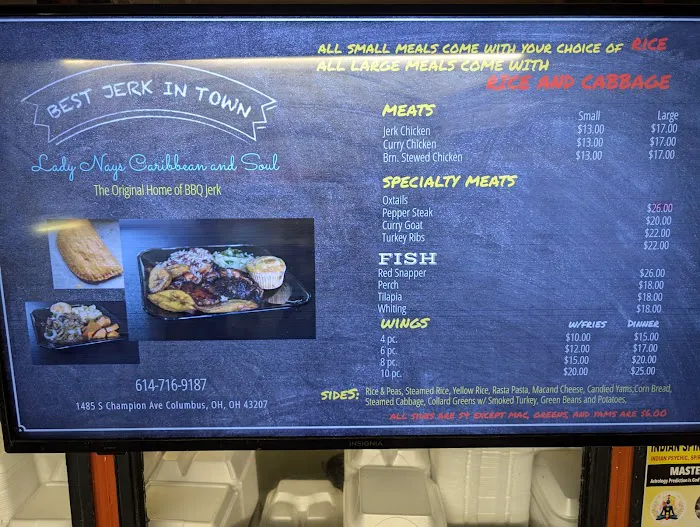 ALL SMALL MEALS COME WITH YOUR CHOICE OF RICE
ALL LARGE MEALS COME WITH
RICE AND CABBAGE
BEST JERK IN TOWN
Lady Nays Caribbean and Soul
The Original Home of BBQ Jerk
614-716-9187
1485 S Champion Ave Columbus, OH, OH 43207
MEATS Small Large
Jerk Chicken $13.00 $17.00
Curry Chicken $13.00 $17.00
Brn. Stewed Chicken $13.00 $17.00
SPECIALTY MEATS
Oxtails $26.00
Pepper Steak $20.00
Curry Goat $22.00
Turkey Ribs $22.00
FISH
Red Snapper $26.00
Perch $18.00
Tilapia $18.00
Whiting $18.00
WINGS W/FRIES DINNER
4 pc. $10.00 $15.00
6 pc. $12.00 $17.00
8 pc. $15.00 $20.00
10 pc. $20.00 $25.00
SIDES: Rice & Peas, Steamed Rice, Yellow Rice, Rasta Pasta, Macand Cheese, Candied Yams,Corn Bread,
Steamed Cabbage, Collard Greens w/ Smoked Turkey, Green Beans and Potatoes,
ALL SIDES ARE $4 EXCEPT MAC, GREENS, AND YAMS ARE $6.00
INSIGNIA
INDIAN
INDIAN PSYCHIC,
MASTE